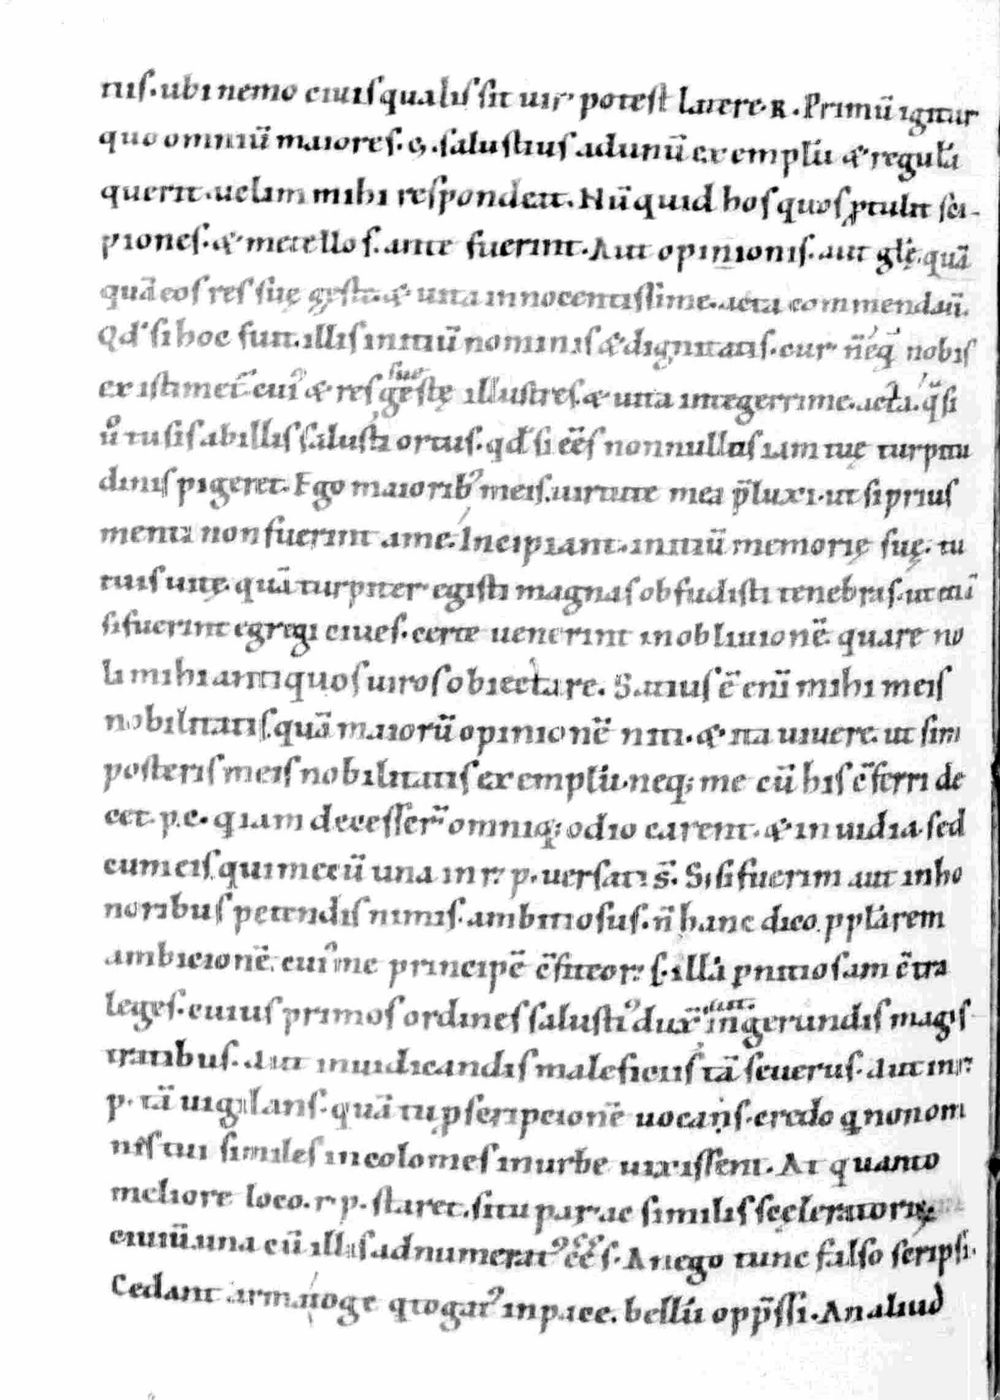 tus. ubi nemo ciuis qualis sit uir potest latere. R. Primū igitur
quo omniū maiores. C. salustius ad unū exemplū & regulā
querit. uelim mihi respondeat. Nū quid hos quos ꝓtulit sci-
piones. & metellos. ante fuerint. Aut opinionis. aut glę. quā
quā eos res suę gestę. & uita innocentissime. acta commendau̅.
Qd̕ si hoc fuit. illis initiū nominis & dignitatis. cur n̄ eq̄ nobis
existimet̄ cui᾽ & res sue gestę illustres. & uita integerrime. acta. q̄si
ů tu sis ab illis salusti ortus. qd̕ si eēs nonnullos iam tuę turpitu
dinis pigeret. Ego maiorib᾽ meis. uirtute mea p̄luxi. ut si prius
menti non fuerint ame. Incipiant. initiū memorię suę. tu
tuis uitę. quā turpiter egisti magnas obfudisti tenebras. ut etiā
si fuerint egregi ciues. certe uenerint in obliuionē. quare no
li mihi antiquos uiros obiectare. Satius ē enī mihi meis
nobilitatis. quā maiorū opinionē niti. & ita uiuere. ut sim
posteris meis nobilitatis exemplū. neq; me cū his c̄ferri de
cet. p. c. qui iam decesser̄ omniq; odio carent. & inuidia. sed
cum eis qui mecū una in r̕ p. uersati s̄. Si si fuerim aut in ho
noribus petendis nimis. ambitiosus. n̄ hanc dico. pplarem
ambicionē. cui᾽ me principē c̄fiteor. s. illā pnitiosam c̄tra
leges. cuius primos ordines salusti᾽ dux̄ aut in gerundis magis
tratibus. aut in uidicandis maleficiis tā seuerus. aut in r̕
p. tā uigilans. quā tu ꝓscripcionē uocans. credo q non om
nis tui similes incolomes in urbe uixissent. At quanto
meliore loco. r̕ p. staret. si tu par ac similis scęleratorū
ciuiū. una cū illis adnumerat᾽ eēs. An ego tunc falso scripsi.
Cedant arma toge q togat᾽ in pace. bellū opp̄ssi. An aliud